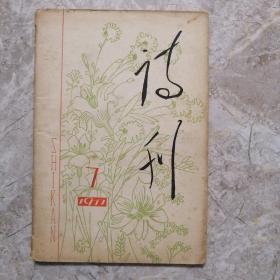 诗刊
SHIKAN
7
1977